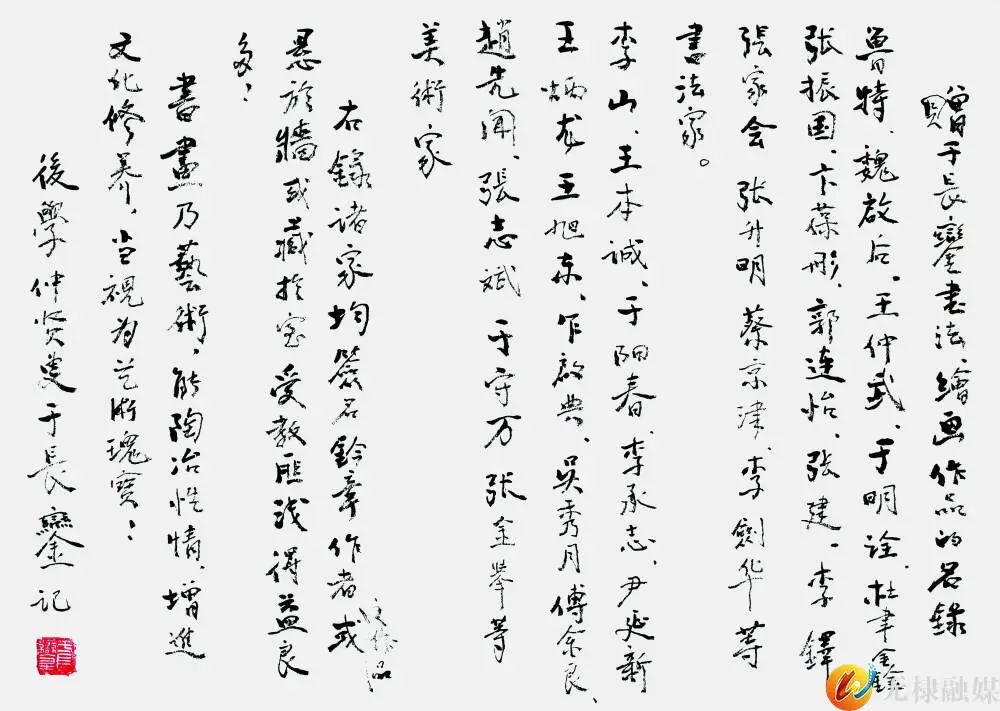 赠于長鑾書法、繪画作品的名錄
魯特、魏啟后、王仲武、于明诠、杜聿鑫
张振国、卞葆彤、郭連怡、张建、李鐸
張家会 张升明 蔡京津、李劍华等
書法家。
李山、王本诚、于阳春、李承志、尹延新
王炳龙 王旭东、乍啟典、吴秀月 傅余良、
趙先闻、張志斌 于守万 张金举等
美術家
右錄諸家均簽名鈴章作者或
品
懸於牆或藏於室受教匪浅得益良
多：
書畫乃藝術，能陶冶性情、增進
文化修养，当視为艺術瑰寶：
後學仲贤叟于長鑾記
无棣融媒